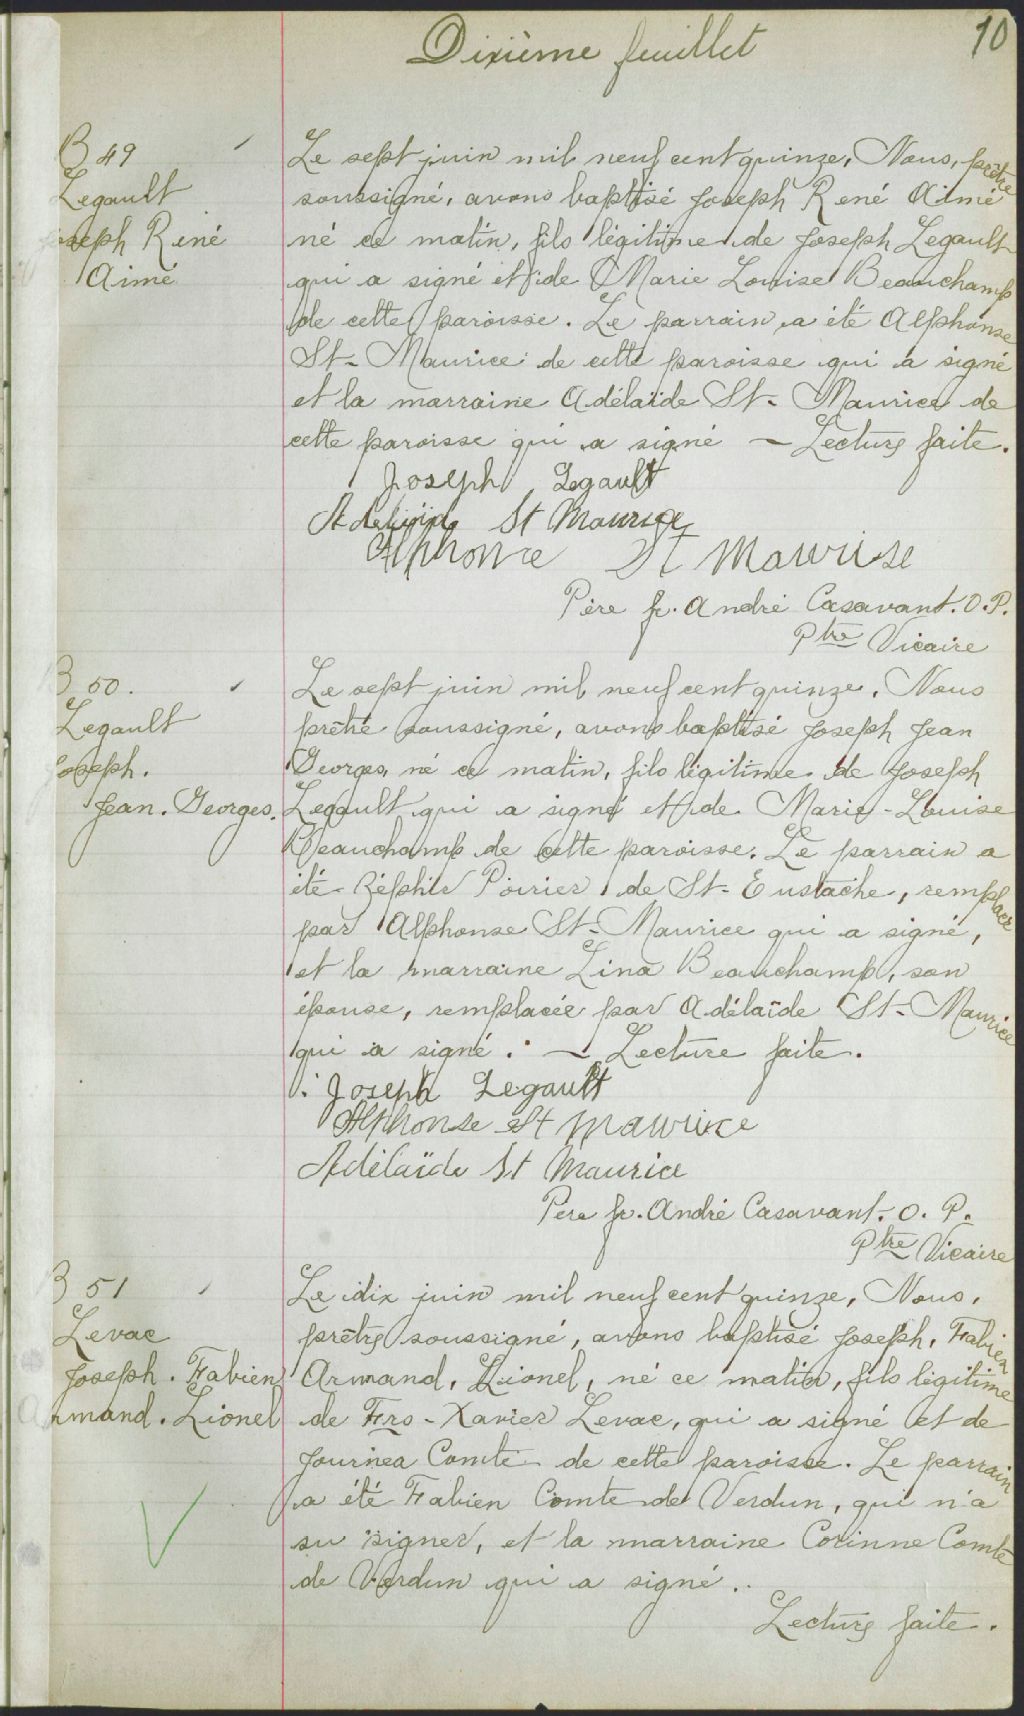 Dixième feuillet
10
B 49
Legault
Joseph René
Aimé
Le sept juin mil neuf cent quinze, Nous, prêtre
soussigné, avons baptisé Joseph René Aimé
né ce matin, fils légitime de Joseph Legault
qui a signé et de Marie Louise Beauchamp
de cette paroisse. Le parrain a été Alphonse
St-Maurice de cette paroisse qui a signé
et la marraine Adélaïde St-Maurice de
cette paroisse qui a signé — Lecture faite.
Joseph Legault
St Maurice
Alphonse St Maurise
Père fr. André Casavant. O.P.
Ptre Vicaire
B 50.
Legault
Joseph.
Jean. Georges.
Le sept juin mil neuf cent quinze, Nous
prêtre soussigné, avons baptisé Joseph Jean
Georges, né ce matin, fils légitime de Joseph
Legault qui a signé et de Marie-Louise
Beauchamp de cette paroisse. Le parrain a
été Zéphir Poirier de St-Eustache, remplacé
par Alphonse St-Maurice qui a signé,
et la marraine Lina Beauchamp, son
épouse, remplacée par Adélaïde St-Maurice
qui a signé. — Lecture faite.
Joseph Legault
Alphonse St Maurice
Adélaïde St Maurice
Père fr. André Casavant. O. P.
Ptre Vicaire
B 51
Levac
Joseph. Fabien
Armand. Lionel
Le dix juin mil neuf cent quinze, Nous,
prêtre soussigné, avons baptisé Joseph, Fabien
Armand, Lionel, né ce matin, fils légitime
de Frs-Xavier Levac, qui a signé et de
Comte de cette paroisse. Le parrain
a été Fabien Comte de Verdun, qui n'a
su signer, et la marraine Corinne Comte
de Verdun qui a signé.
Lecture faite.